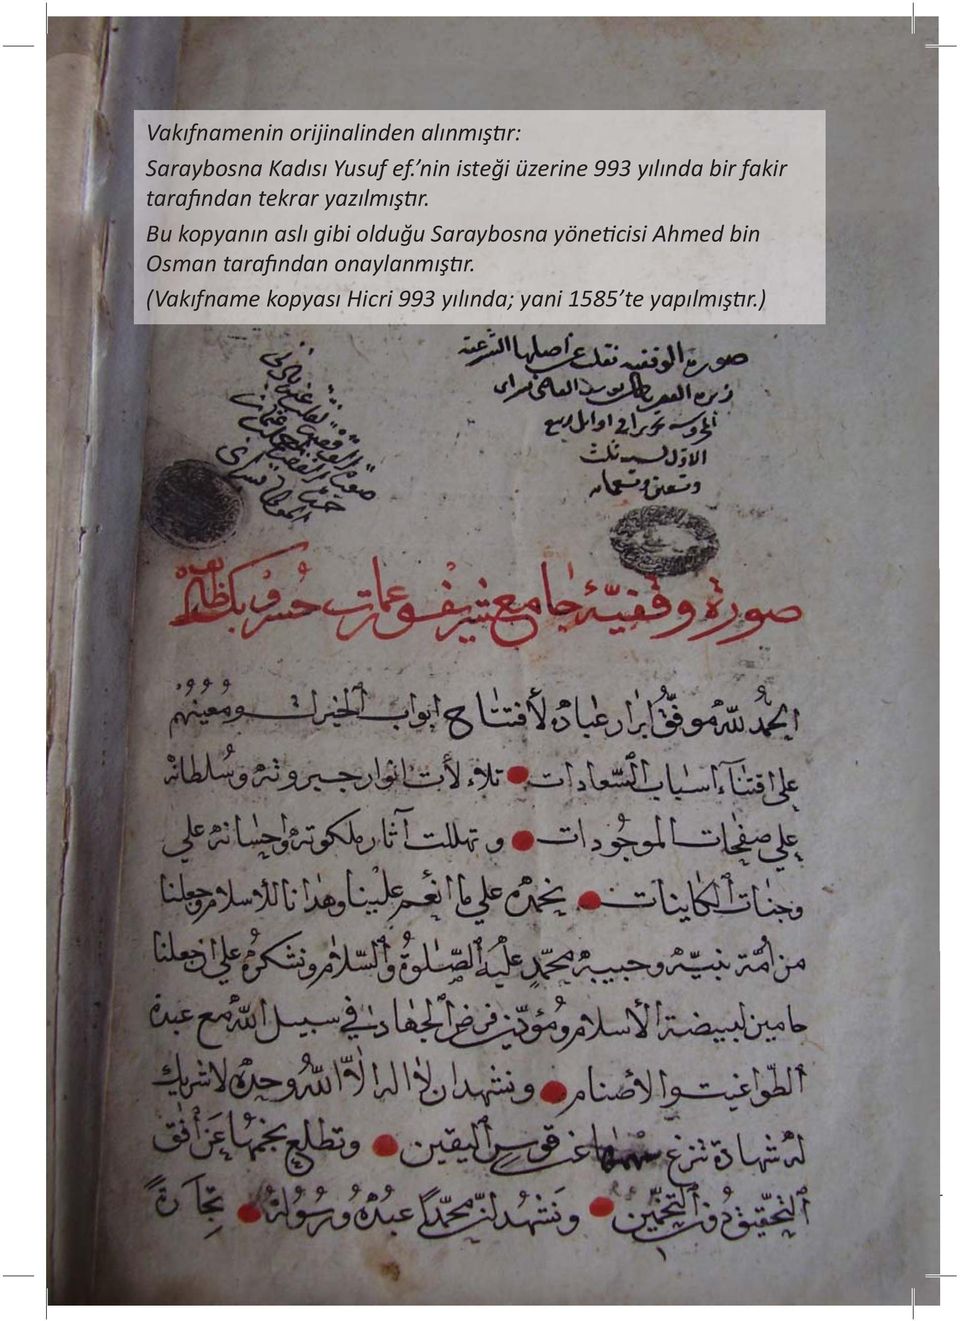 Vakıfnamenin orijinalinden alınmıştır:
Saraybosna Kadısı Yusuf ef.’nin isteği üzerine 993 yılında bir fakir
tarafından tekrar yazılmıştır.
Bu kopyanın aslı gibi olduğu Saraybosna yöneticisi Ahmed bin
Osman tarafından onaylanmıştır.
(Vakıfname kopyası Hicri 993 yılında; yani 1585’te yapılmıştır.)
صورة الوقفيه نقلت عن اصلها
اوايل ربيع
الاول لسنه ثلث
وتسعين وتسعمائه
صورة وقفيۀ جامع شريف و عمارت خسرو بك
الحمد لله موفق ابرار عباده لأفتتاح ابواب الخيرات ومعينهم
علي اقتناء اسباب السعادات تلاءلأت انوار جبروته وسلطانه
علي صفحات الموجودات وتهللت آثار ملكوته واحسانه علي
وجنات الكاينات نحمده علي ما انعم علينا وهدانا للأسلام وجعلنا
من أمة نبيه وحبيبه محمد عليه الصلوة والسلام ونشكره علي ان جعلنا
حامين لبيضة الأسلام ومؤدين فرض الجهاد في سبيل الله مع عبدة
الطواغيت والأصنام ونشهد ان لا اله الا الله وحده لا شريك
له شهادة تنزع سهمها عن قوس اليقين وتطلع نجمها عن أفق
التحقيق دون التخمين ونشهد ان محمدا عبده ورسوله تجارة